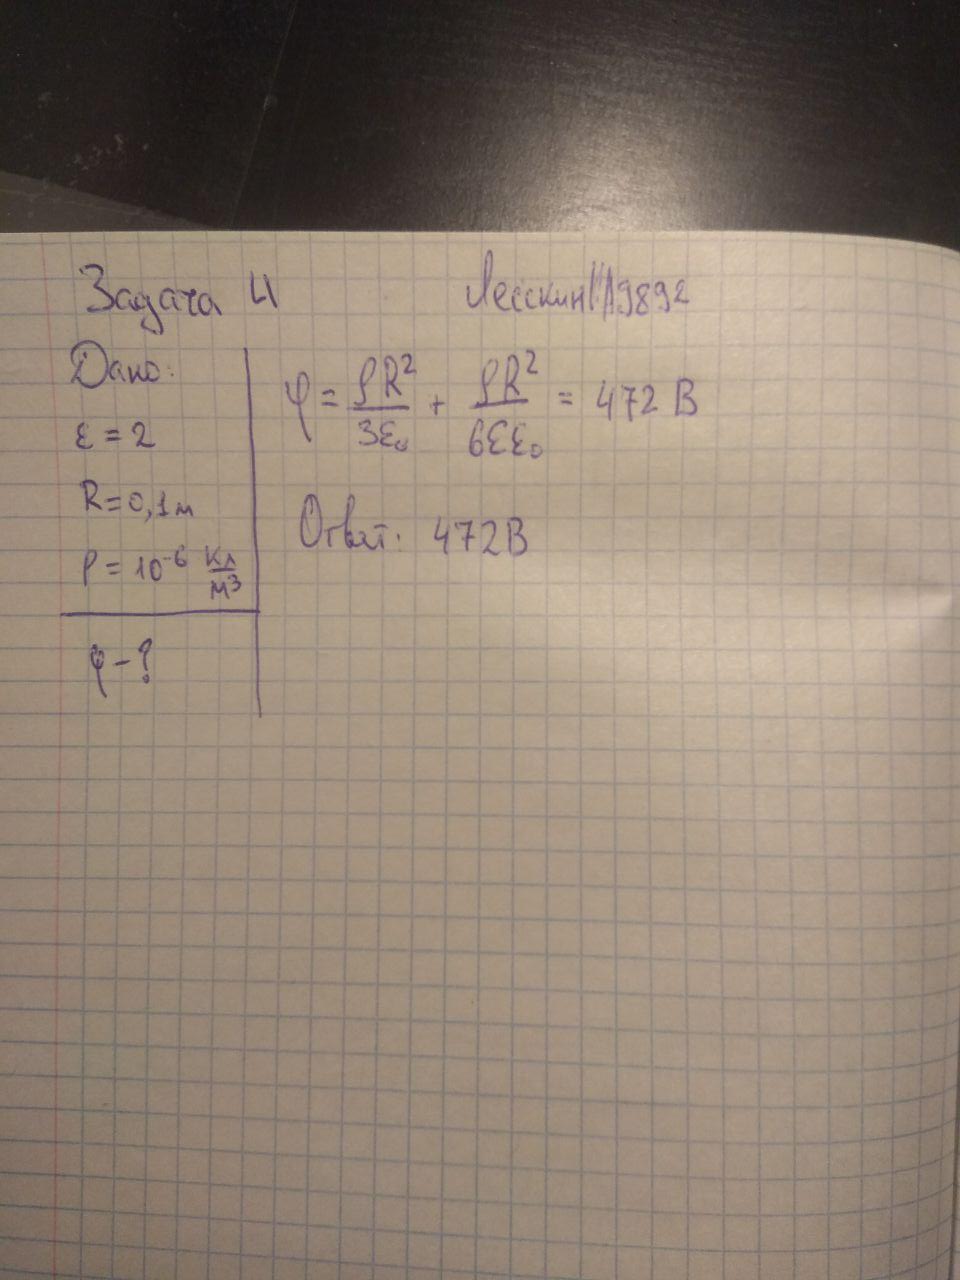 Задача 4
Дано:
ε = 2
R = 0,1 м
ρ = 10⁻⁶ Кл/м³
φ - ?
φ = ρR²/3ε₀ + ρR²/6εε₀ = 472 В
Ответ: 472 В